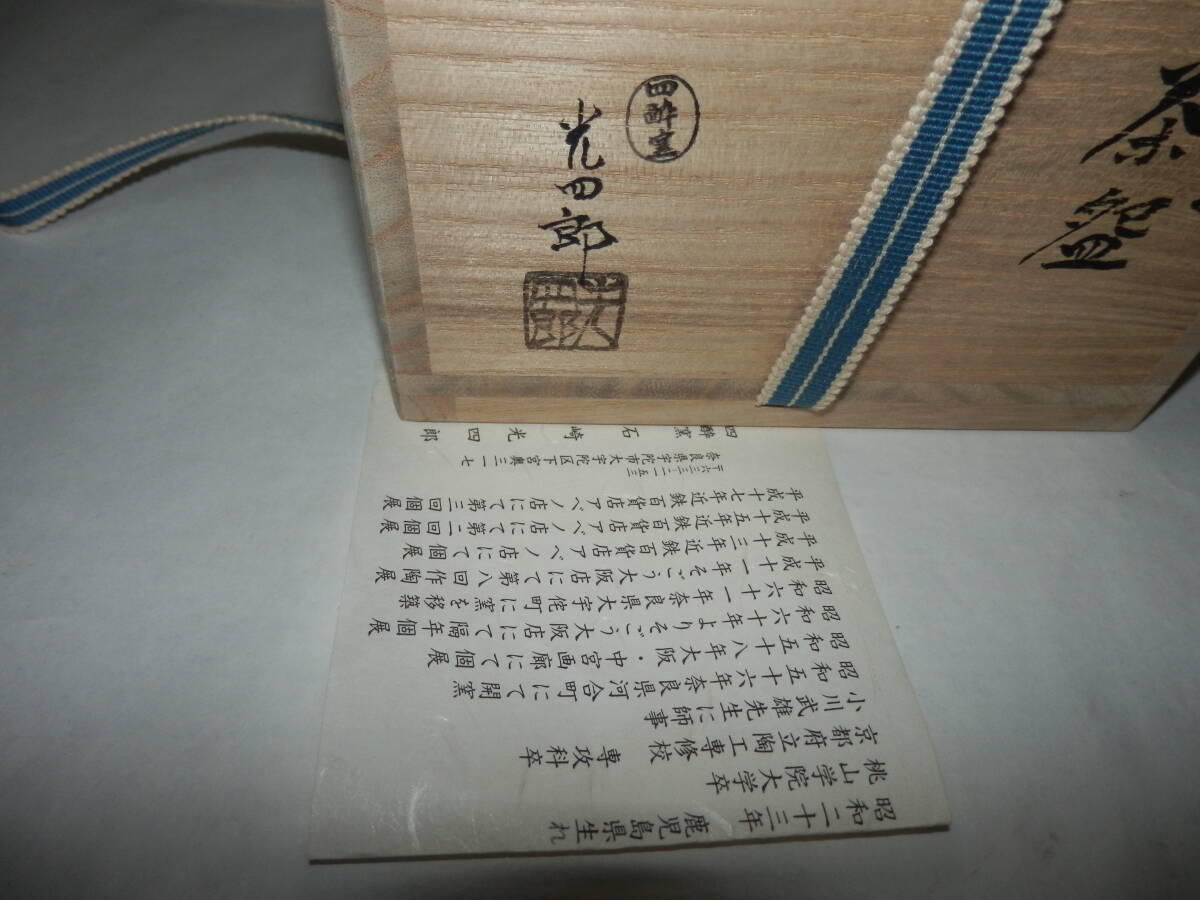 茶盌
四酔窯
光四郎
昭和二十三年 鹿児島県生れ
桃山学院大学卒
京都府立陶工専修校 専攻科卒
小川武雄先生に師事
昭和五十六年 奈良県河合町にて開窯
昭和五十八年 大阪・中宮画廊にて個展
昭和六十年よりそごう大阪店にて隔年個展
昭和六十一年 奈良県大宇陀町に窯を移築
平成十一年 そごう大阪店にて第八回作陶展
平成十三年 近鉄百貨店アベノ店にて個展
平成十五年 近鉄百貨店アベノ店にて第二回個展
平成十七年 近鉄百貨店アベノ店にて第三回個展
〒六三三-二一五三
奈良県宇陀市大宇陀区下宮奥三一七
四酔窯 石崎光四郎